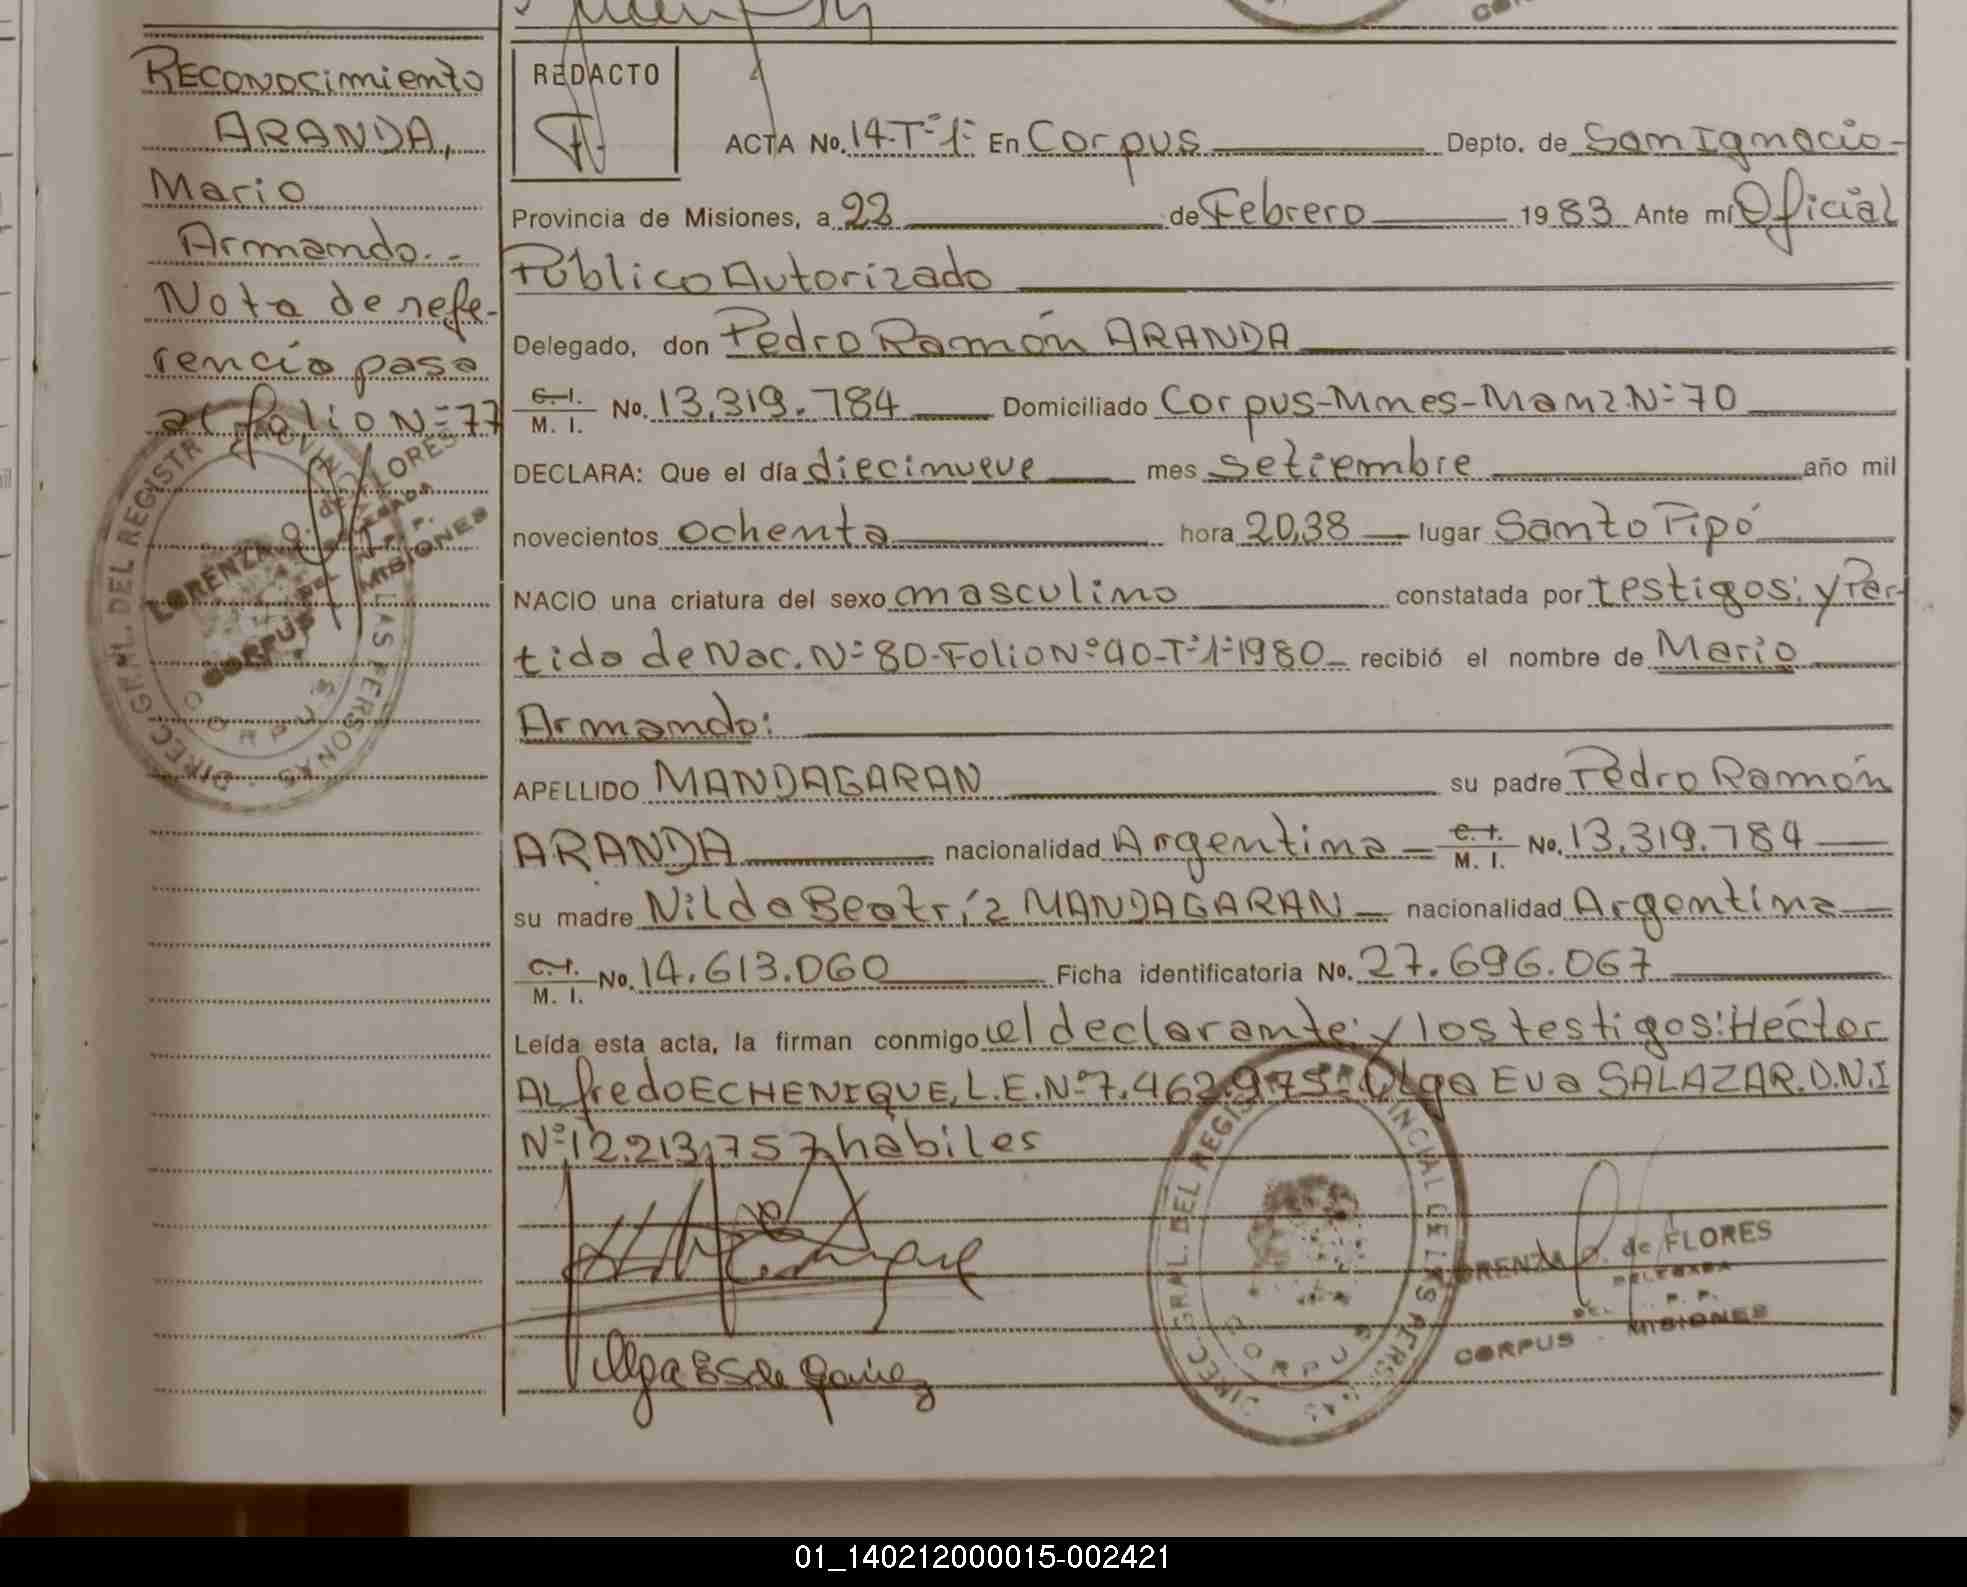 RECONOCIMIENTO
ARANDA,
Mario
Armando..-
Nota de refe-
rencia pasa
al folio Nº=77
REDACTO
ACTA No. 14-Tº1º En Corpus Depto. de San Ignacio-
Provincia de Misiones, a 22 de Febrero 1983 Ante mí Oficial
Público Autorizado
Delegado, don Pedro Ramón ARANDA
C. I.
M. I. No. 13.319.784 Domiciliado Corpus-Mnes-Manz.Nº70
DECLARA: Que el día diecinueve mes setiembre año mil
novecientos ochenta hora 20,38 lugar Santo Pipó
NACIO una criatura del sexo masculino constatada por testigos: y Par-
tida de Nac. Nº 80-Folio Nº 40-Tº1º1980 recibió el nombre de Mario
Armando:
APELLIDO MANDAGARAN su padre Pedro Ramón
ARANDA nacionalidad Argentina C. I.
M. I. No. 13.319.784
su madre Nilda Beatríz MANDAGARAN nacionalidad Argentina
C. I.
M. I. No. 14.613.060 Ficha identificatoria No. 27.696.067
Leída esta acta, la firman conmigo el declarante: y los testigos: Héctor
ALfredo ECHENIQUE, L.E.Nº7.462.975= Olga Eva SALAZAR.D.N.I
Nº:12.213.757 hábiles
DIREC. GRAL. DEL REGISTR LAS PERSONAS
CORPUS
LORENZA O. de FLORES
DELEGADA
CORPUS MISIONES
DIREC. GRAL. DEL REGIS INCIAL DE LAS PERSONAS
CORPUS
LORENZA O. de FLORES
DELEGADA
DEL P. P.
CORPUS - MISIONES
01_140212000015-002421